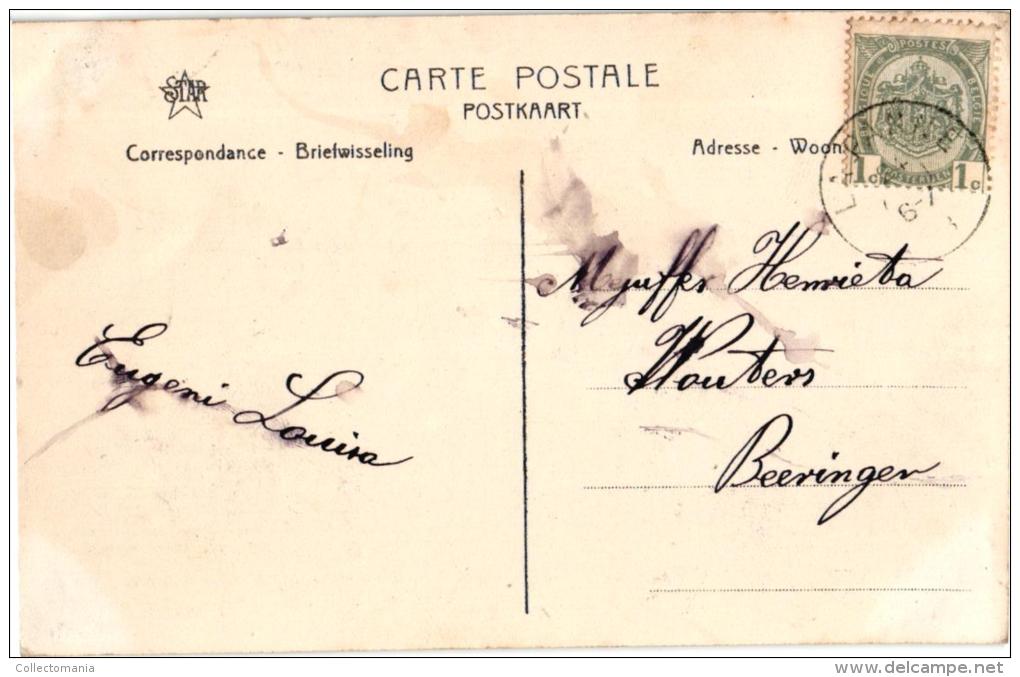 CARTE POSTALE
POSTKAART
STAR
Correspondance - Briefwisseling
Adresse - Woon
POSTES
BELGIQUE BELGIE
POSTERIJEN
1c 1c
6-7
Myuffer Henrieta
Wouters
Beeringen
Eugeni Louisa
Collectomania
www.delcampe.net